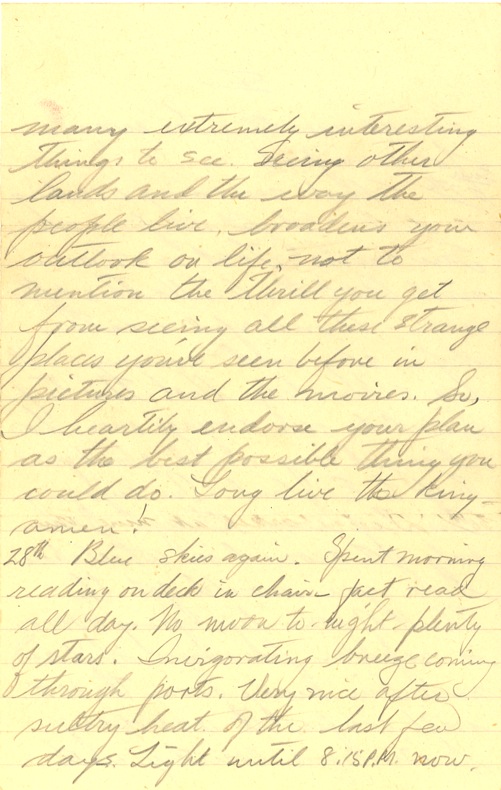 many extremely interesting
things to see. Seeing other
lands and the way the
people live, broadens your
outlook on life, not to
mention the thrill you get
from seeing all these strange
places you've seen before in
pictures and the movies. So,
I heartily endorse your plan
as the best possible thing you
could do. Long live the king -
amen!
28th Blue skies again. Spent morning
reading on deck in chair - fact read
all day. No moon to-night - plenty
of stars. Invigorating breeze coming
through ports. Very nice after
sultry heat of the last few
days. Light until 8:15 P.M. now.